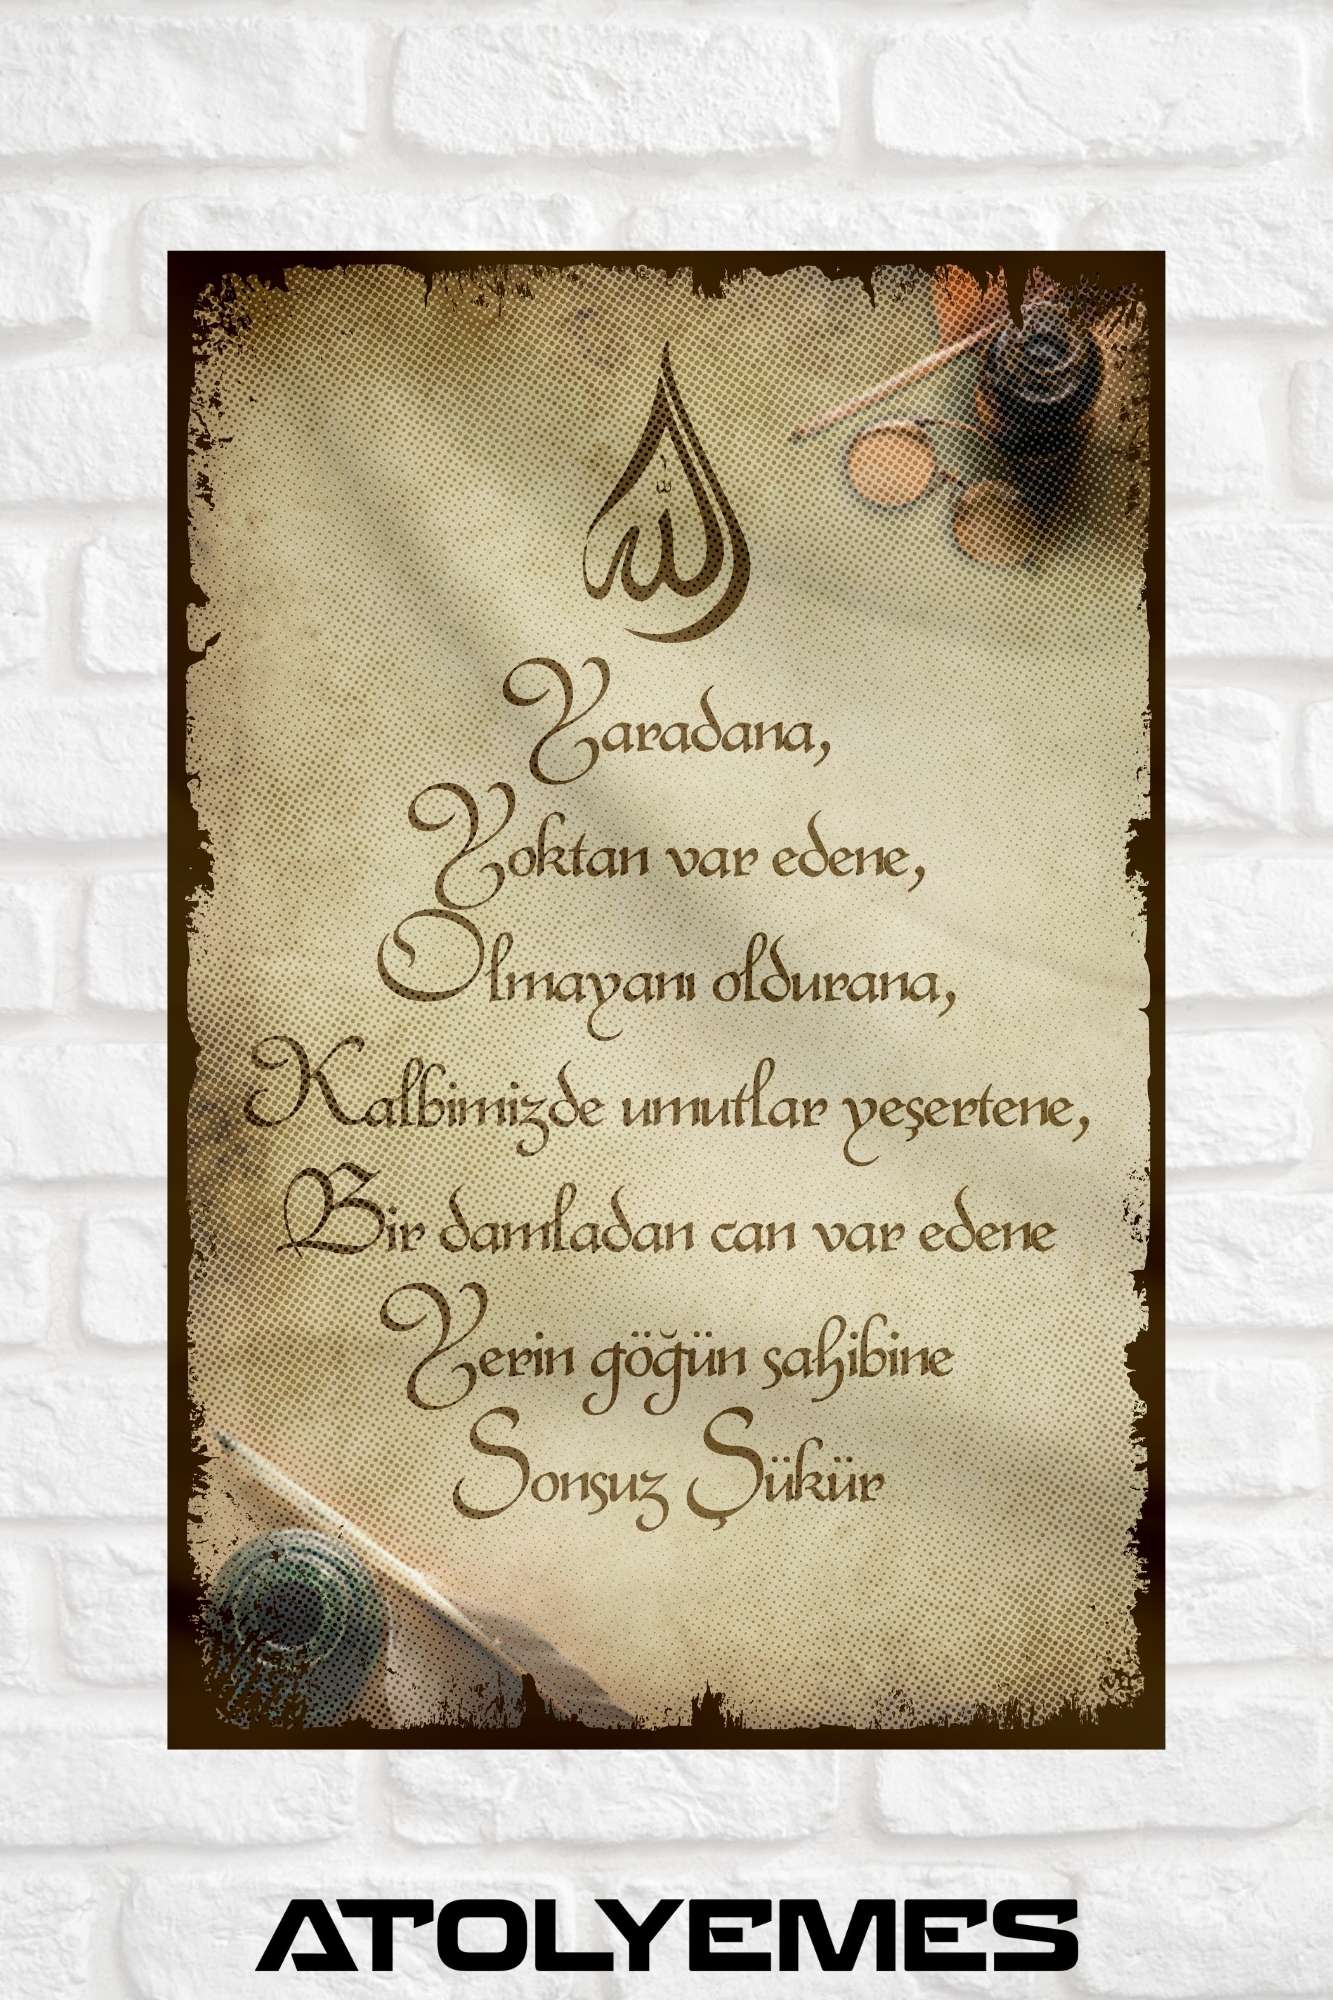 الله
Yaradana,
Yoktan var edene,
Olmayanı oldurana,
Kalbimizde umutlar yeşertene,
Bir damladan can var edene
Yerin göğün sahibine
Sonsuz Şükür
ATOLYEMES